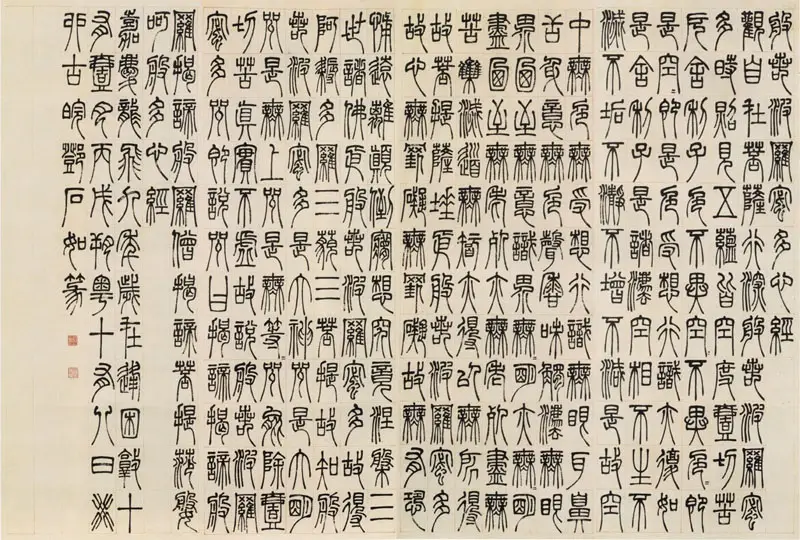 般若波羅蜜多心經
觀自在菩薩行深般若波羅蜜
多時照見五蘊皆空度壹切苦
厄舍利子色不異空=不異色即
是空=即是色受想行識亦復如
是舍利子是諸法空相不生不
滅不垢不淨不增不減是故空
中無色無受想行識無眼耳鼻
舌身意無色聲香味觸法無眼
界乃至無意識界無=明亦無=明
盡乃至無老死亦無老死盡無
苦集滅道無智亦得以無所得
故菩提薩埵依般若波羅蜜多
故心無罣礙無罣礙故無有恐
怖遠離顛倒夢想究竟涅槃三
世諸佛依般若波羅蜜多故得
阿耨多羅三藐三菩提故知般
若波羅蜜多是大神咒是大明
咒是無上咒是無等=咒能除壹
切苦真實不虛故說般若波羅
蜜多咒即說咒曰揭諦揭諦般
羅揭諦般羅僧揭諦菩提薩婆
呵般多心經
嘉慶龍飛九年歲在逢困敦十
有壹月丙戌朔粵十有八日癸
卯古皖鄧石如篆